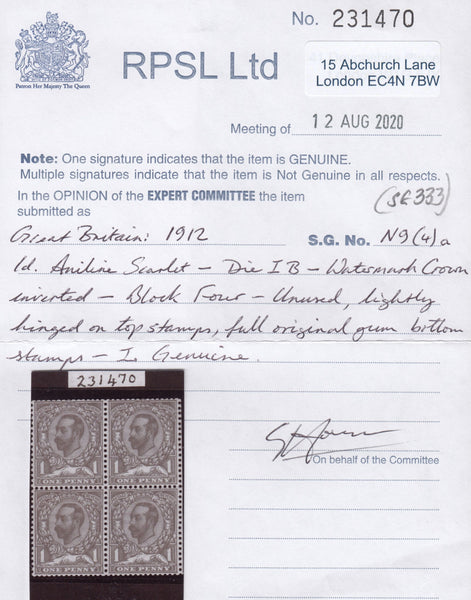 No. 231470
RPSL Ltd
15 Abchurch Lane
London EC4N 7BW
Patron Her Majesty The Queen
Meeting of 12 AUG 2020
Note: One signature indicates that the item is GENUINE.
Multiple signatures indicate that the item is Not Genuine in all respects.
In the OPINION of the EXPERT COMMITTEE the item
submitted as
(SE333)
Great Britain: 1912
S.G. No. N9(4)a
1d. Aniline Scarlet - Die 1B - Watermark Crown
inverted - Block Four - Unused, lightly
hinged on top stamps, full original gum bottom
stamps - Is Genuine.
231470
1 1 1 1
ONE PENNY ONE PENNY
1 1 1 1
ONE PENNY ONE PENNY
On behalf of the Committee